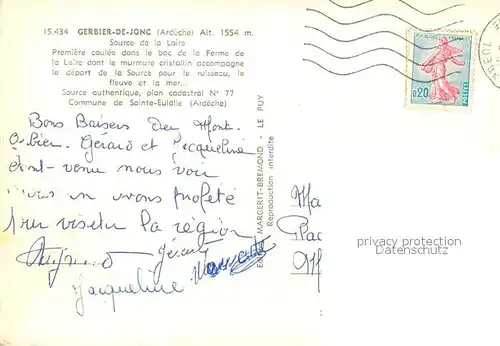 15.434 GERBIER-DE-JONC (Ardèche) Alt. 1554 m.
Source de la Loire
Première coulée dans le bac de la Ferme de
la Loire dont le murmure cristallin accompagne
le départ de la Source pour le ruisseau, le
fleuve et la mer...
Source authentique, plan cadastral N° 77
Commune de Sainte-Eulalie (Ardèche)
Bons Baisers du Mont.
Gérard et Jacqueline
venu nous voir
en avons profité
visiter la région
Gérard
Jacqueline
MARGERIT-BREMOND - LE PUY
Reproduction interdite
REPUBLIQUE FRANÇAISE
0,20
POSTES
Ma
Plac
privacy protection
Datenschutz